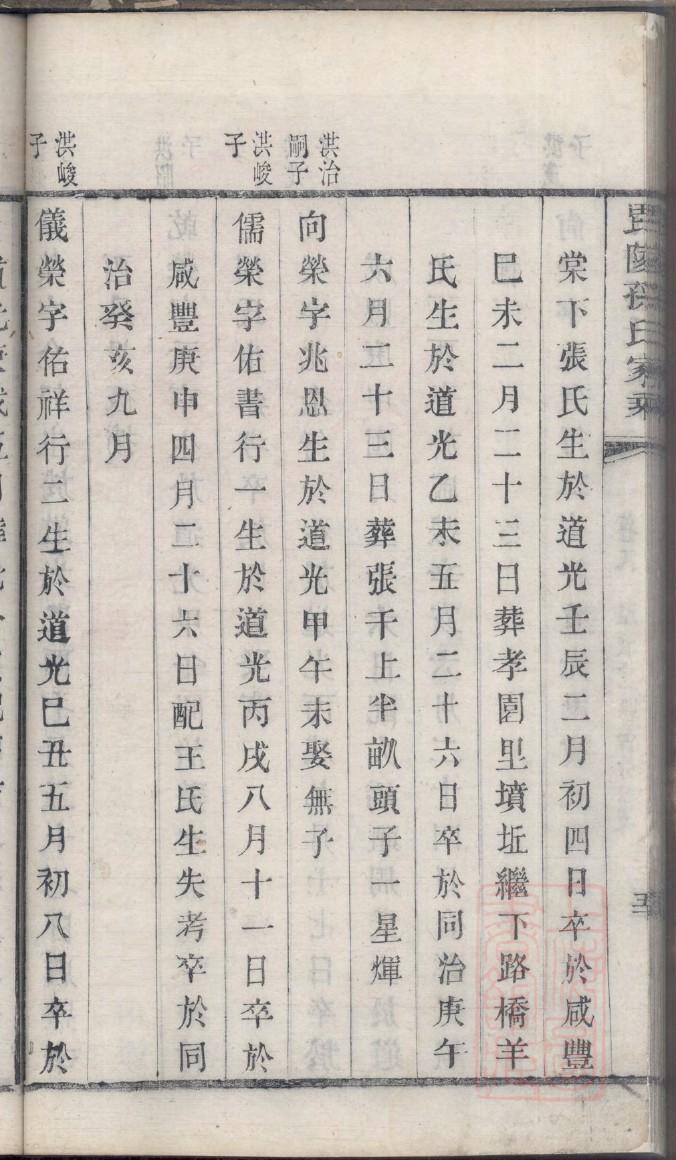 毘陵孫氏家乘
棠下張氏生於道光壬辰二月初四日卒於咸豐
巳未二月二十三日葬孝園里墳坵繼下路橋羊
氏生於道光乙未五月二十六日卒於同治庚午
六月二十三日葬張千上半畝頭子一星煇
洪治嗣子
向榮字兆恩生於道光甲午未娶無子
洪峻子
儒榮字佑書行一生於道光丙戌八月十一日卒於
咸豐庚申四月二十六日配王氏生失考卒於同
治癸亥九月
洪峻子
儀榮字佑祥行二生於道光巳丑五月初八日卒於